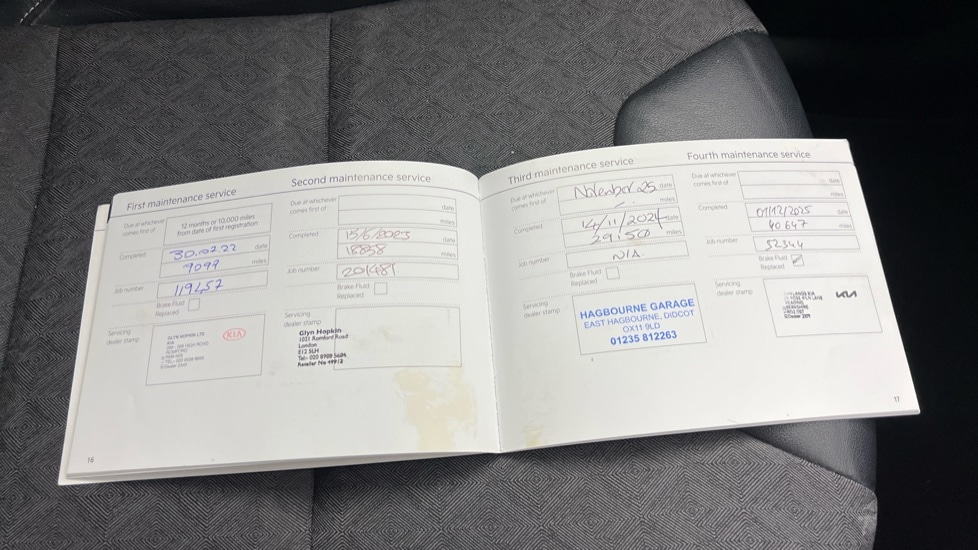 First maintenance service
Due at whichever
comes first of
12 months or 10,000 miles
from date of first registration
Completed
30.02.22 date
9099 miles
Job number
119452
Brake Fluid
Replaced
Servicing
dealer stamp
GLYN HOPKIN LTD
KIA
16
Second maintenance service
Due at whichever
comes first of
date
miles
Completed
15/6/2023 date
18858 miles
Job number
201481
Brake Fluid
Replaced
Servicing
dealer stamp
Glyn Hopkin
1021 Romford Road
London
E12 5LH
Tel:- 020 8709 5684
Reseller No 49912
Third maintenance service
Due at whichever
comes first of
November 25 date
miles
Completed
14/11/2024 date
29,150 miles
Job number
N/A
Brake Fluid
Replaced
Servicing
dealer stamp
HAGBOURNE GARAGE
EAST HAGBOURNE, DIDCOT
OX11 9LD
01235 812263
Fourth maintenance service
Due at whichever
comes first of
date
miles
Completed
01/12/2025 date
40647 miles
Job number
52344
Brake Fluid
Replaced
Servicing
dealer stamp
KIA
17